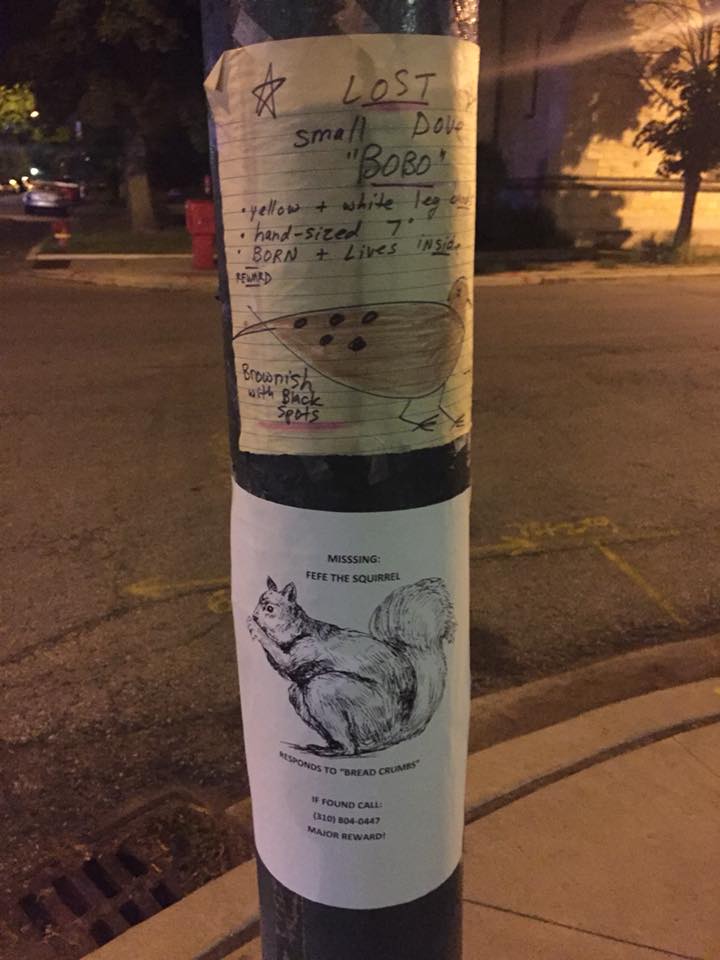 LOST
small Dove
"BOBO"
• yellow + white leg
• hand-sized 7"
• BORN + Lives inside
REWARD
Brownish
with Black
Spots
MISSSING:
FEFE THE SQUIRREL
RESPONDS TO "BREAD CRUMBS"
IF FOUND CALL:
(310) 804-0447
MAJOR REWARD!